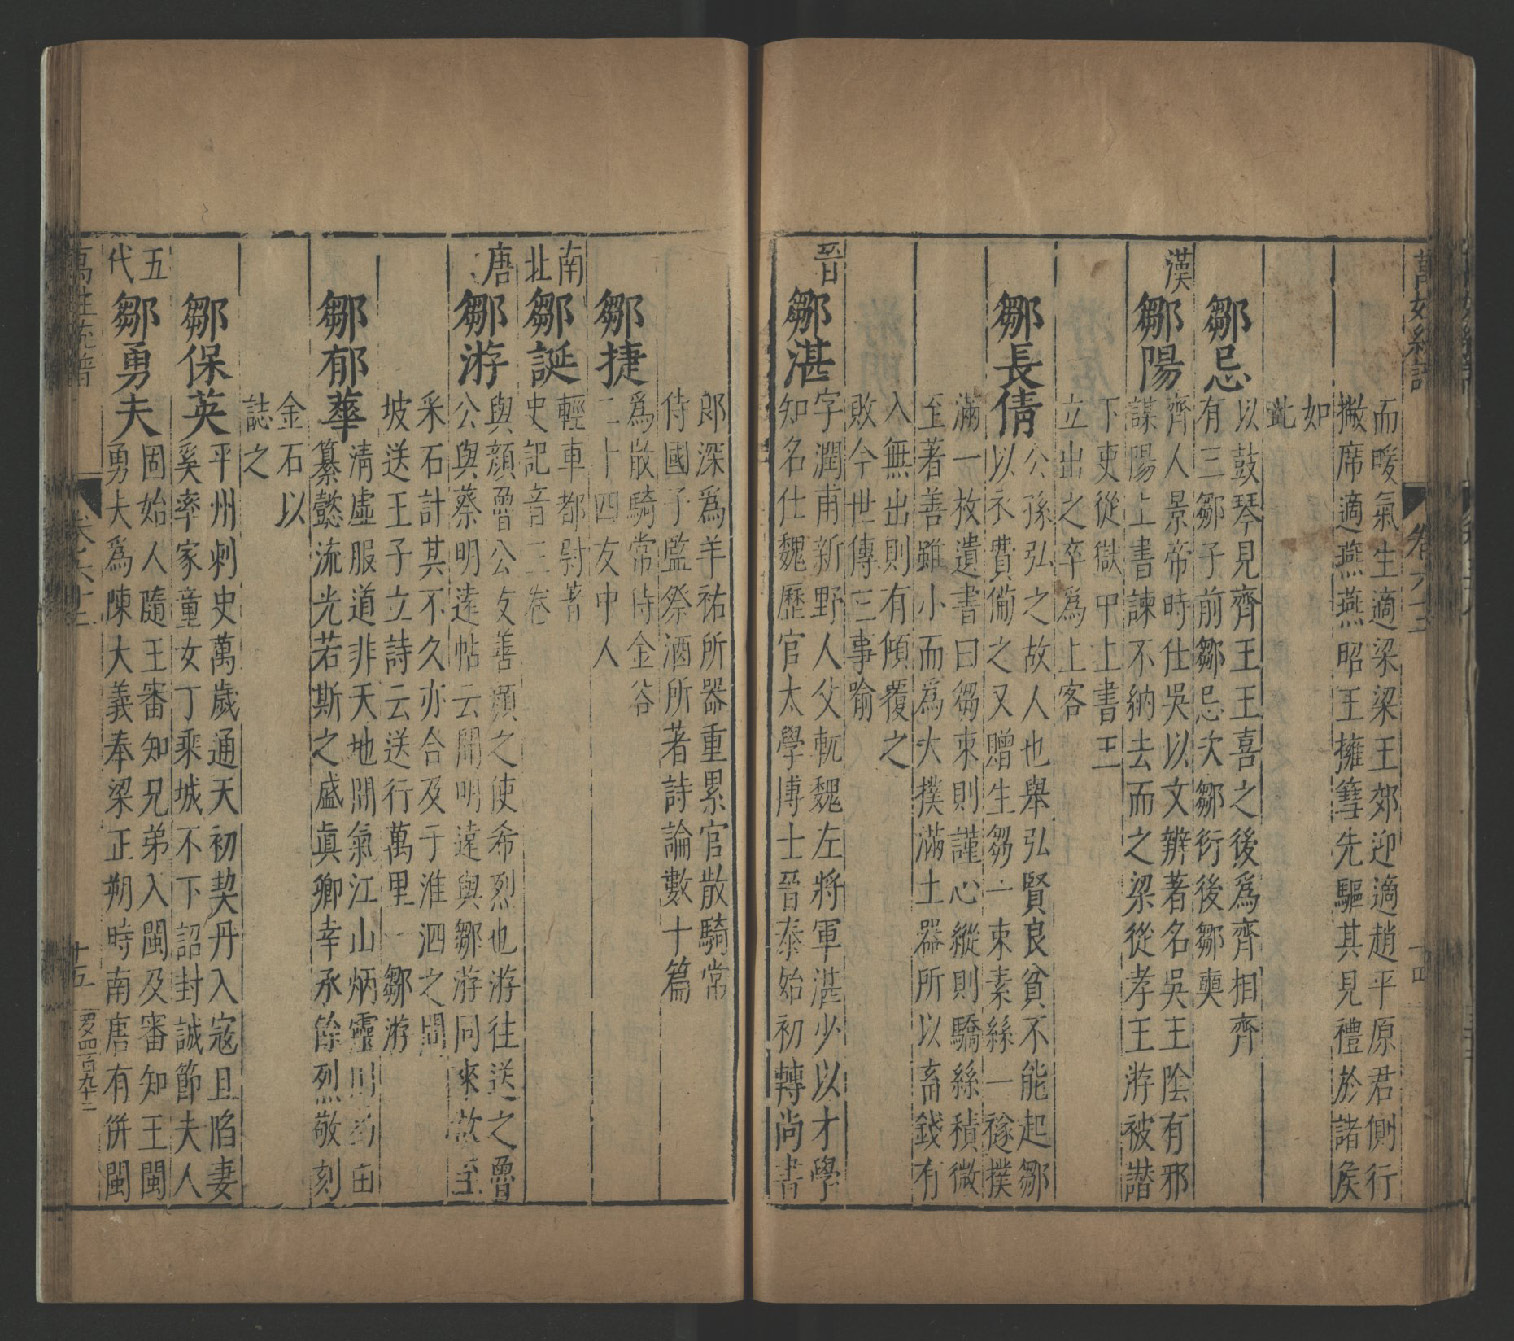 而暖氣生適梁梁王郊迎適趙平原君側行
撇席適燕燕昭王擁篲先驅其見禮於諸侯
如
此
鄒忌
以鼓琴見齊王王喜之後爲齊相齊
有三鄒子前鄒忌次鄒衍後鄒奭
漢
鄒陽
齊人景帝時仕吳以文辨著名吳王陰有邪
謀陽上書諫不納去而之梁從孝王游被譖
下吏從獄中上書王
立出之卒爲上客
鄒長倩
公孫弘之故人也舉弘賢良貧不能起鄒
以衣費備之又贈生芻一束素絲一襚撲
滿一枚遺書曰芻束則謹心縱則驕絲積微
至著善雖小而爲大撲滿土器所以畜錢有
入無出則有傾覆之
敗今世傳三事喻
晉
鄒湛
字潤甫新野人父軌魏左將軍湛少以才學
知名仕魏歷官太學博士晉泰始初轉尚書
郎深爲羊祐所器重累官散騎常
侍國子監祭酒所著詩論數十篇
鄒捷
爲散騎常侍金谷
二十四友中人
南
北
鄒誕
輕車都尉著
史記音三卷
唐
鄒游
與顏魯公友善顏之使希烈也游往送之魯
公與蔡明遠帖云聞明遠與鄒游同來故至
釆石計其不久亦合及于淮泗之間
坡送王子立詩云送行萬里一鄒游
鄒郁華
清虛服道非天地間氣江山炳靈
纂懿流光若斯之盛眞卿幸承餘烈敬刻
金石以
誌之
鄒保英
平州刺史萬歲通天初契丹入寇且陷妻
奚率家童女丁乘城不下詔封誠節夫人
五
代
鄒勇夫
固始人隨王審知兄弟入閩及審知王閩
勇大爲陳大義奉梁正朔時南唐有併閩
萬姓統譜
卷六十二
十五